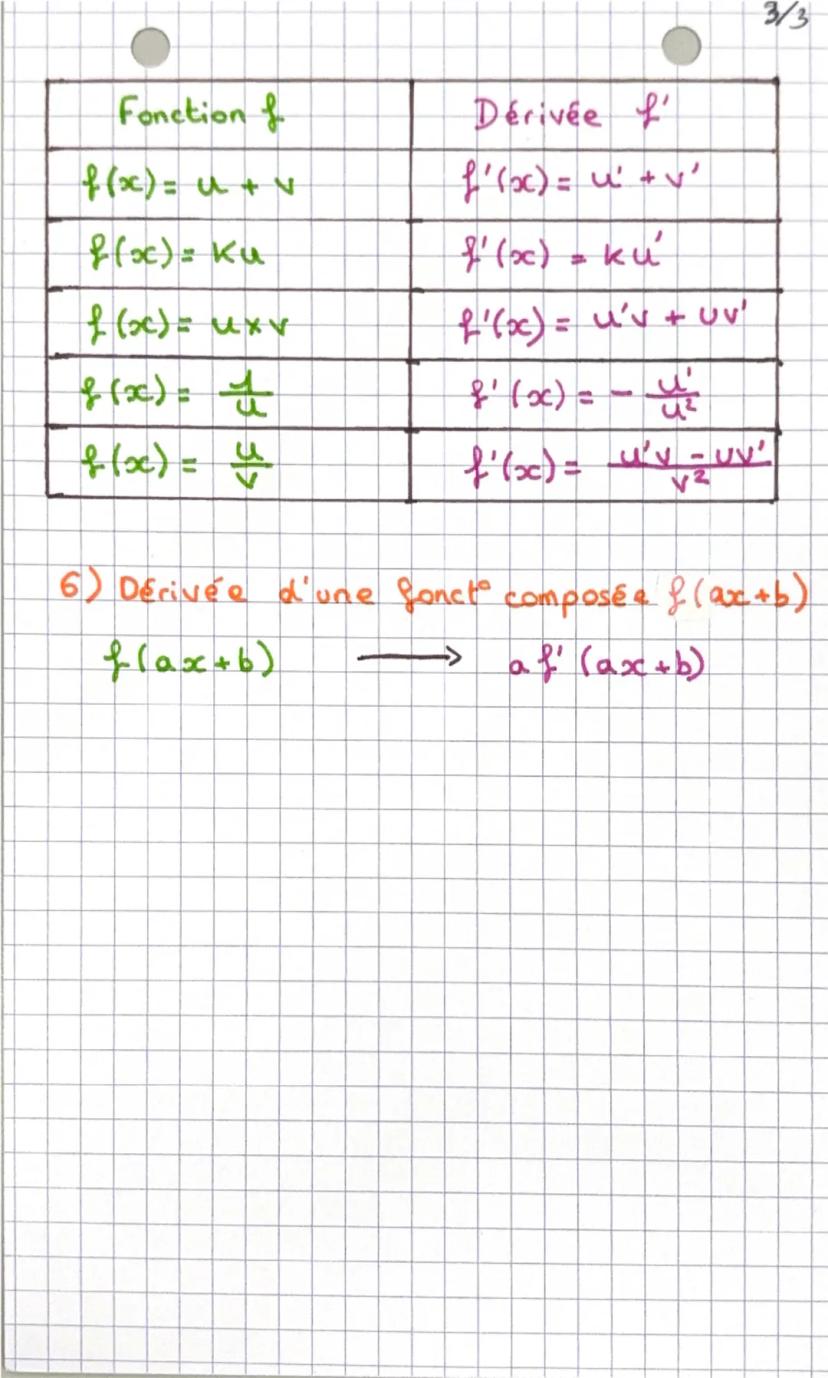 3/3
Fonction f Dérivée f'
f(x) = u + v f'(x) = u' + v'
f(x) = Ku f'(x) = ku'
f(x) = u × v f'(x) = u'v + uv'
f(x) = 1/u f'(x) = - u'/u²
f(x) = u/v f'(x) = u'v - uv'/v²
6) Dérivée d'une fonct° composée f(ax+b)
f(ax+b) → af'(ax+b)